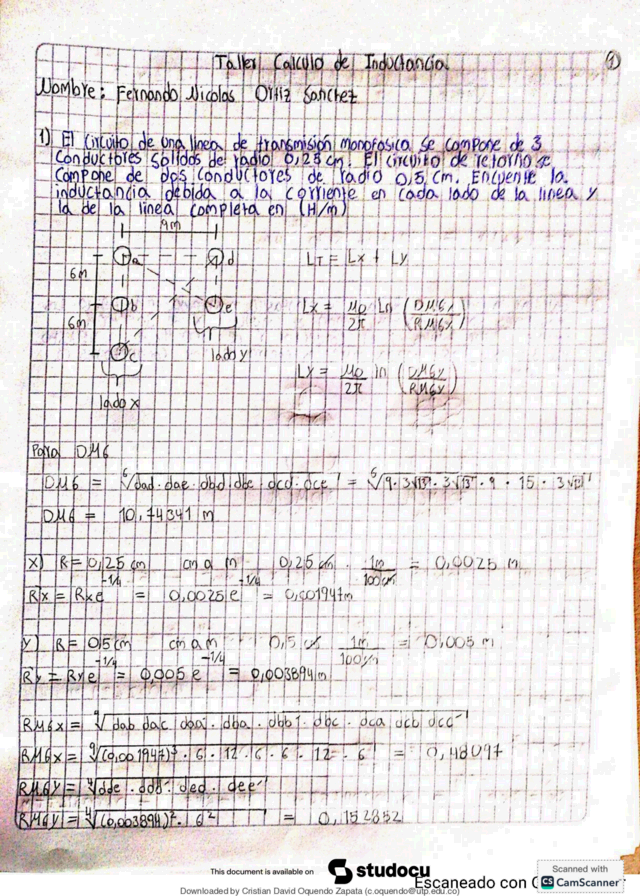 Taller Calculo de Inductancia
1
Nombre: Fernando Nicolas Ortiz Sanchez
1) El circuito de una linea de transmisión monofasica se compone de 3
conductores solidos de radio 0,25 cm. El circuito de retorno se
compone de dos conductores de radio 0,5 cm. Encuente la
inductancia debida a la corriente en cada lado de la linea y
la de la linea completa en (H/m)
9m
a d
6m
b e
6m
c
lado y
lado x
LT = Lx + Ly
Lx = μ0/2π Ln (DMGx/RMGx)
Ly = μ0/2π ln (DMGy/RMGy)
Para DMG
DMG = ⁶√dad · dae · dbd · dbe · dcd · dce = ⁶√9 · 3√13 · 3√13 · 9 · 15 · 3√13
DMG = 10,74341 m
x) R = 0,25 cm cm a m 0,25 cm · 1m/100cm = 0,0025 m
R'x = Rxe^-1/4 = 0,0025 e^-1/4 = 0,001947m
y) R = 0,5 cm cm a m 0,5 1m/100cm = 0,005 m
R'y = Rye^-1/4 = 0,005 e^-1/4 = 0,003894m
RMGx = ⁹√dab dac daa' · dba · dbb' · dbc · dca dcb dcc'
RMGx = ⁹√(0,001947)³ · 6 · 12 · 6 · 6 · 12 · 6 = 0,48097
RMGy = ⁴√dde · ddd' · ded · dee'
RMGy = ⁴√(0,003894)² · 6² = 0,152852
This document is available on studocu
Escaneado con
Scanned with
CS CamScanner
Downloaded by Cristian David Oquendo Zapata (c.oquendo@utp.edu.co)